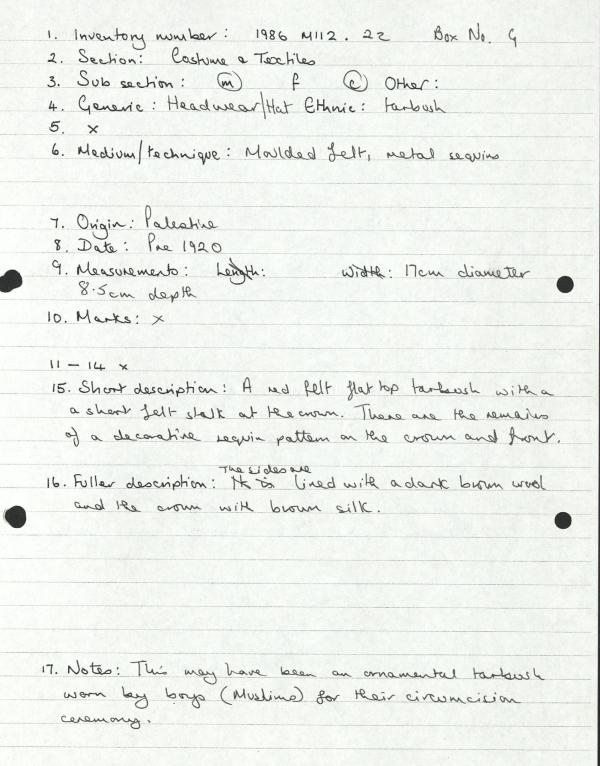 1. Inventory number: 1986 M112. 22 Box No. G
2. Section: Costume & Textiles
3. Sub section: m f c Other:
4. Generic: Headwear/Hat Ethnic: tarbush
5. x
6. Medium/technique: Moulded felt, metal sequins
7. Origin: Palestine
8. Date: Pre 1920
9. Measurements: Length: width: 17cm diameter
8.5cm depth
10. Marks: x
11 - 14 x
15. Short description: A red felt flat top tarbush with a
a short felt stalk at the crown. There are the remains
of a decorative sequin pattern on the crown and front.
The sides are
16. Fuller description: It is lined with a dark brown wool
and the crown with brown silk.
17. Notes: This may have been an ornamental tarbush
worn by boys (Muslims) for their circumcision
ceremony.